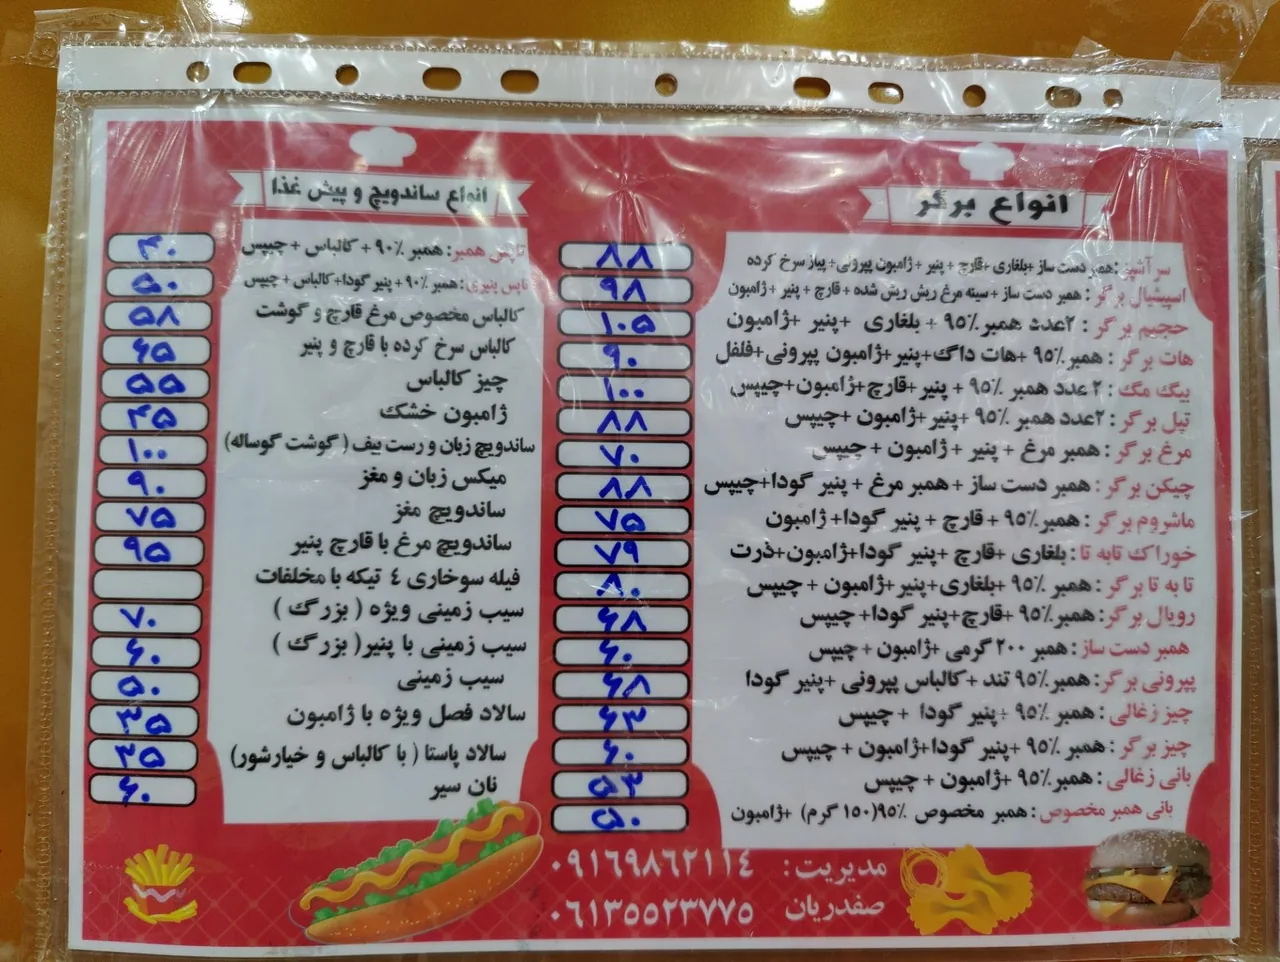 انواع برگر
سرآشپز: همبر دست ساز +بلغاری +قارچ + پنیر + ژامبون پپرونی + پیاز سرخ کرده ۸۸
اسپیشیال برگر : همبر دست ساز + سینه مرغ ریش ریش شده + قارچ + پنیر + ژامبون ۹۸
حجیم برگر : ۲عدد همبر ۹۵٪ + بلغاری + پنیر +ژامبون ۱۰۵
هات برگر : همبر ۹۵٪ +هات داگ+پنیر+ژامبون پپرونی+فلفل ۹۰
بیگ مگ : ۲ عدد همبر ۹۵٪ + پنیر +قارچ+ژامبون+چیپس ۱۰۰
تپل برگر : ۲عدد همبر ۹۵٪ +پنیر+ژامبون +چیپس ۸۸
مرغ برگر : همبر مرغ + پنیر + ژامبون + چیپس ۷۰
چیکن برگر : همبر دست ساز + همبر مرغ + پنیر گودا+چیپس ۸۸
ماشروم برگر : همبر ۹۵٪ + قارچ + پنیر گودا+ ژامبون ۷۵
خوراک تابه تا : بلغاری +قارچ +پنیر گودا+ژامبون+ذرت ۷۹
تا به تا برگر : همبر ۹۵٪ +بلغاری+پنیر+ژامبون + چیپس ۸۰
رویال برگر: همبر ۹۵٪ +قارچ+پنیر گودا+ چیپس ۶۸
همبر دست ساز : همبر ۲۰۰ گرمی +ژامبون + چیپس ۶۰
پپرونی برگر: همبر ۹۵٪ تند +کالباس پپرونی +پنیر گودا ۶۸
چیز زغالی : همبر ۹۵٪ +پنیر گودا + چیپس ۶۳
چیز برگر : همبر ۹۵٪ +پنیر گودا+ژامبون + چیپس ۶۰
بانی زغالی : همبر ۹۵٪ +ژامبون + چیپس ۵۳
بانی همبر مخصوص : همبر مخصوص ۹۵٪ (۱۵۰ گرم) +ژامبون ۵۰
انواع ساندویچ و پیش غذا
تاپس همبر: همبر ۹۰٪ + کالباس + چیپس ۴۰
تاپس پنیری : همبر ۹۰٪ + پنیر گودا+کالباس + چیپس ۵۰
کالباس مخصوص مرغ قارچ و گوشت ۵۸
کالباس سرخ کرده با قارچ و پنیر ۶۵
چیز کالباس ۵۵
ژامبون خشک ۴۵
ساندویچ زبان و رست بیف ( گوشت گوساله) ۱۰۰
میکس زبان و مغز ۹۰
ساندویچ مغز ۷۵
ساندویچ مرغ با قارچ پنیر ۹۵
فیله سوخاری ٤ تیکه با مخلفات
سیب زمینی ویژه ( بزرگ ) ۷۰
سیب زمینی با پنیر( بزرگ ) ۶۰
سیب زمینی ۵۰
سالاد فصل ویژه با ژامبون ۳۵
سالاد پاستا ( با کالباس و خیارشور) ۳۵
نان سیر ۶۰
مدیریت: ۰۹۱۶۹۸۶۲۱۱٤
صفدریان ۰۶۱۳۵۵۲۳۷۷۵